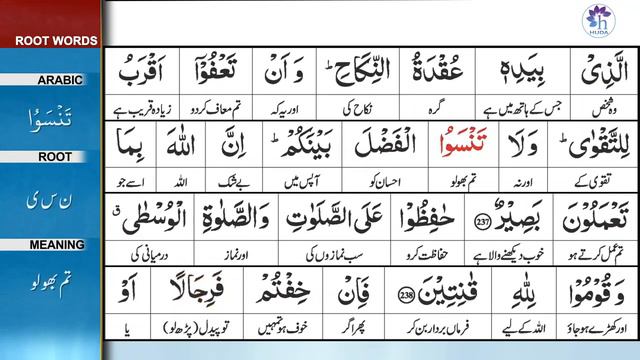 HUDA
ROOT WORDS
ARABIC
تَنْسَوُا
ROOT
ن س ی
MEANING
تم بھولو
الَّذِىْ بِيَدِهٖ عُقْدَةُ النِّكَاحِ ؕ وَ اَنْ تَعْفُوْۤا اَقْرَبُ
وہ شخص جس کے ہاتھ میں ہے گرہ نکاح کی اور یہ کہ تم معاف کر دو زیادہ قریب ہے
لِلتَّقْوٰى ؕ وَلَا تَنْسَوُا الْفَضْلَ بَيْنَكُمْ ؕ اِنَّ اللّٰهَ بِمَا
تقوی کے اور نہ تم بھولو احسان کو آپس میں بے شک اللہ اسے جو
تَعْمَلُوْنَ بَصِيْرٌ 237 حٰفِظُوْا عَلَى الصَّلَوٰتِ وَالصَّلٰوةِ الْوُسْطٰى ق
تم عمل کرتے ہو خوب دیکھنے والا ہے حفاظت کرو سب نمازوں کی اور نماز درمیانی کی
وَ قُوْمُوْا لِلّٰهِ قٰنِتِيْنَ 238 فَاِنْ خِفْتُمْ فَرِجَالًا اَوْ
اور کھڑے ہو جاؤ اللہ کے لیے فرماں بردار بن کر پھر اگر خوف ہو تمہیں تو پیدل (پڑھ لو) یا